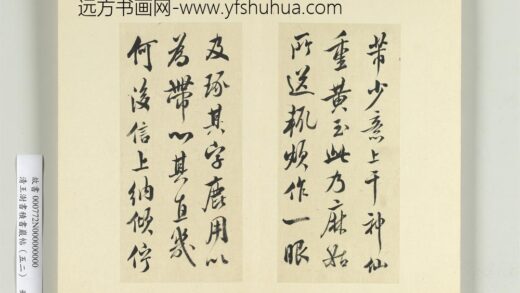 远方书画网-www.yfshuhua.com
带少意上干神仙
重黄玉此乃麻姑
所送輒煩作一眼
及琢其字鹿用以
為帶以其直幾
何後信上納傾佇
故書 000772N000000000
清王澍書積書巖帖（五二）